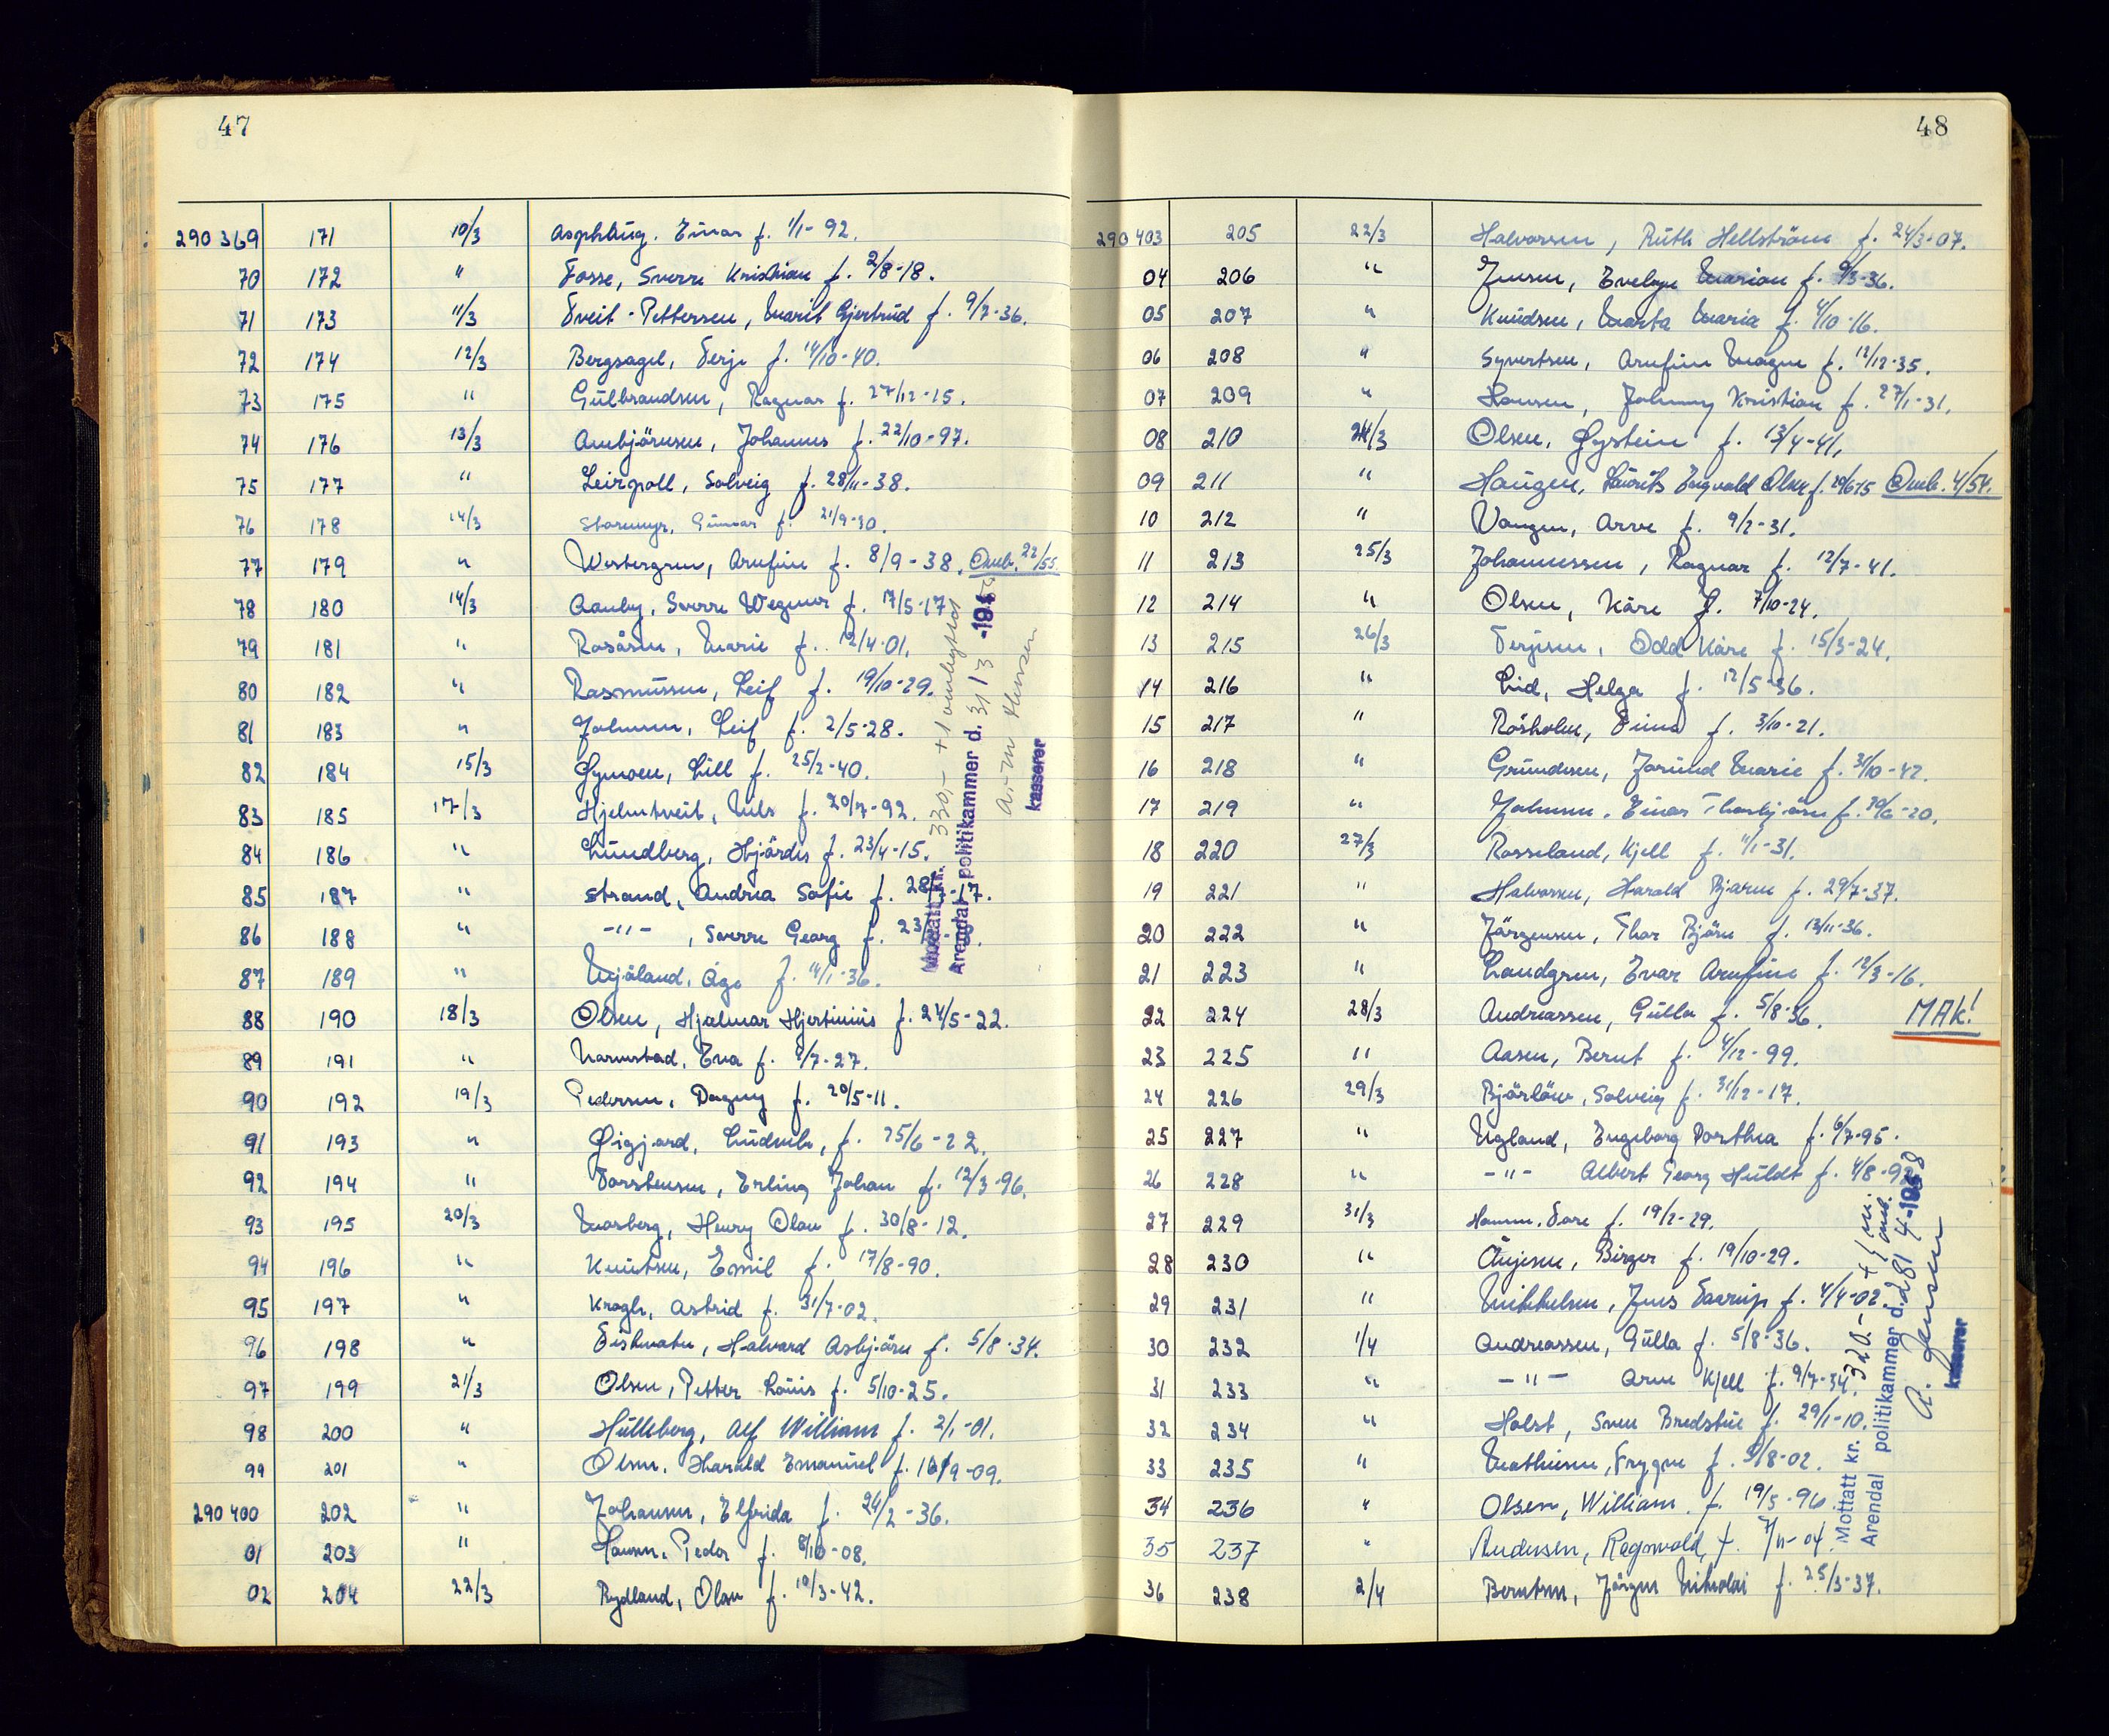 47
290 369 171 10/3 Asphaug, Einar f. 1/1-92.
70 172 " Fosse, Sverre Kristian f. 2/8-18.
71 173 11/3 Tveit-Pettersen, Marit Gjertrud f. 9/7-36.
72 174 12/3 Bergsagel, Terje f. 14/10-40.
73 175 " Gulbrandsen, Ragnar f. 27/12-15.
74 176 13/3 Ambjörnsen, Johannes f. 22/10-97.
75 177 " Leirpoll, Solveig f. 28/11-38.
76 178 14/3 Stormyr, Gunnar f. 21/9-30.
77 179 " Westergren, Arnfinn f. 8/9-38. Omb. 22/55.
78 180 14/3 Aanby, Sverre Wegner f. 17/5-17
79 181 " Rosåsen, Marie f. 12/4-01.
80 182 " Rasmussen, Leif f. 19/10-29.
81 183 " Johnsen, Leif f. 2/5-28.
82 184 15/3 Gymoen, Lill f. 25/2-40.
83 185 17/3 Hjelmtveit, Nils f. 20/7-92.
84 186 " Lundberg, Hjördis f. 23/4-15.
85 187 " Strand, Andrea Sofie f. 28/7-17.
86 188 " -"- , Sverre Georg f. 23/
87 189 " Mjåland, Åge f. 14/1-36.
88 190 18/3 Olsen, Hjalmar Hjertinius f. 24/5-22.
89 191 " Narmstad, Eva f. 8/7-27.
90 192 19/3 Pedersen, Dagny f. 20/5-11.
91 193 " Øigjord, Ludvik, f. 25/6-22.
92 194 " Torstensen, Erling Johan f. 12/3-96.
93 195 20/3 Mosberg, Henry Olav f. 30/8-12.
94 196 " Knutsen, Emil f. 17/8-90.
95 197 " Krogh, Astrid f. 31/7-02.
96 198 " Fiskvatn, Halvard Asbjörn f. 5/8-34.
97 199 21/3 Olsen, Petter Louis f. 5/10-25.
98 200 " Hulleberg, Alf William f. 2/1-01.
99 201 " Olsen, Harald Emanuel f. 16/9-09.
290 400 202 " Johansen, Elfrida f. 24/2-36.
01 203 " Hansen, Peder f. 8/10-08.
02 204 22/3 Rydland, Olav f. 10/3-42.
Mottatt kr. 330,- + 1 ombyttet
Arendal politikammer d. 31/3 -195
A. Jensen
kasserer
48
290 403 205 22/3 Halvorsen, Ruth Hellström f. 24/3-07.
04 206 " Jensen, Evelyn Marion f. 9/3-36.
05 207 " Knudsen, Marta Maria f. 4/10-16.
06 208 " Syvertsen, Arnfinn Magne f. 12/12-35.
07 209 " Hansen, Johnny Kristian f. 27/1-31.
08 210 24/3 Olsen, Øystein f. 13/4-41.
09 211 " Haugen, Laurits Ingvald Olsen f. 29/6-15 Omb. 4/54.
10 212 " Vangen, Arve f. 9/2-31.
11 213 25/3 Johannessen, Ragnar f. 12/7-41.
12 214 " Olsen, Kåre f. 7/10-24.
13 215 26/3 Terjesen, Odd Kåre f. 15/3-24.
14 216 " Lid, Helga f. 12/5-36.
15 217 " Rosholm, Tinna f. 3/10-21.
16 218 " Grundesen, Jorund Marie f. 31/10-42.
17 219 " Johnsen, Einar Thorbjörn f. 30/6-20.
18 220 27/3 Rosseland, Kjell f. 11/1-31.
19 221 " Halvorsen, Harald Bjarne f. 29/7-37.
20 222 " Jörgensen, Thor Björn f. 13/11-36.
21 223 " Landgren, Evar Arnfinn f. 12/3-16.
22 224 28/3 Andreassen, Gulla f. 5/8-36. MAK!
23 225 " Aasen, Bernt f. 4/12-99.
24 226 29/3 Björlöw, Solveig f. 31/12-17.
25 227 " Ugland, Engeborg Dorthea f. 6/7-95.
26 228 " -"- Albert Georg Huldt f. 4/8-92
27 229 31/3 Hamm, Tore f. 19/2-29.
28 230 " Aujesen, Birger f. 19/10-29.
29 231 " Mikkelsen, Jens Saarup f. 4/4-02
30 232 1/4 Andreassen, Gulla f. 5/8-36.
31 233 " -"- Arne Kjell f. 9/7-34.
32 234 " Holst, Sven Bredstue f. 29/1-10.
33 235 " Mathisen, Trygve f. 5/8-02.
34 236 " Olsen, William f. 19/5-96.
35 237 " Andersen, Ragnvald, f. 7/11-04.
36 238 2/4 Berntsen, Jörgen Nikolai f. 25/3-37.
Mottatt kr. 320,- +
Arendal politikammer d. 2/4-1958
A. Jensen
kasserer